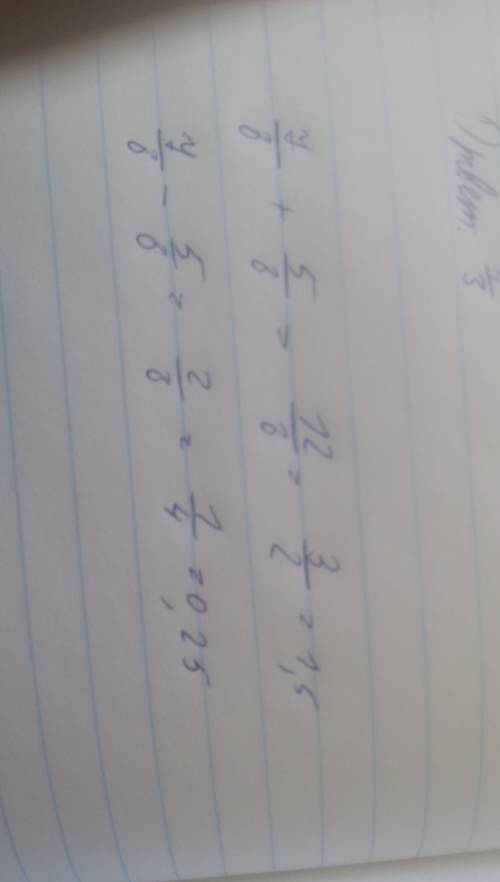 Ответ.
7/8 + 5/8 = 12/8 = 3/2 = 1,5
7/8 - 5/8 = 2/8 = 1/4 = 0,25